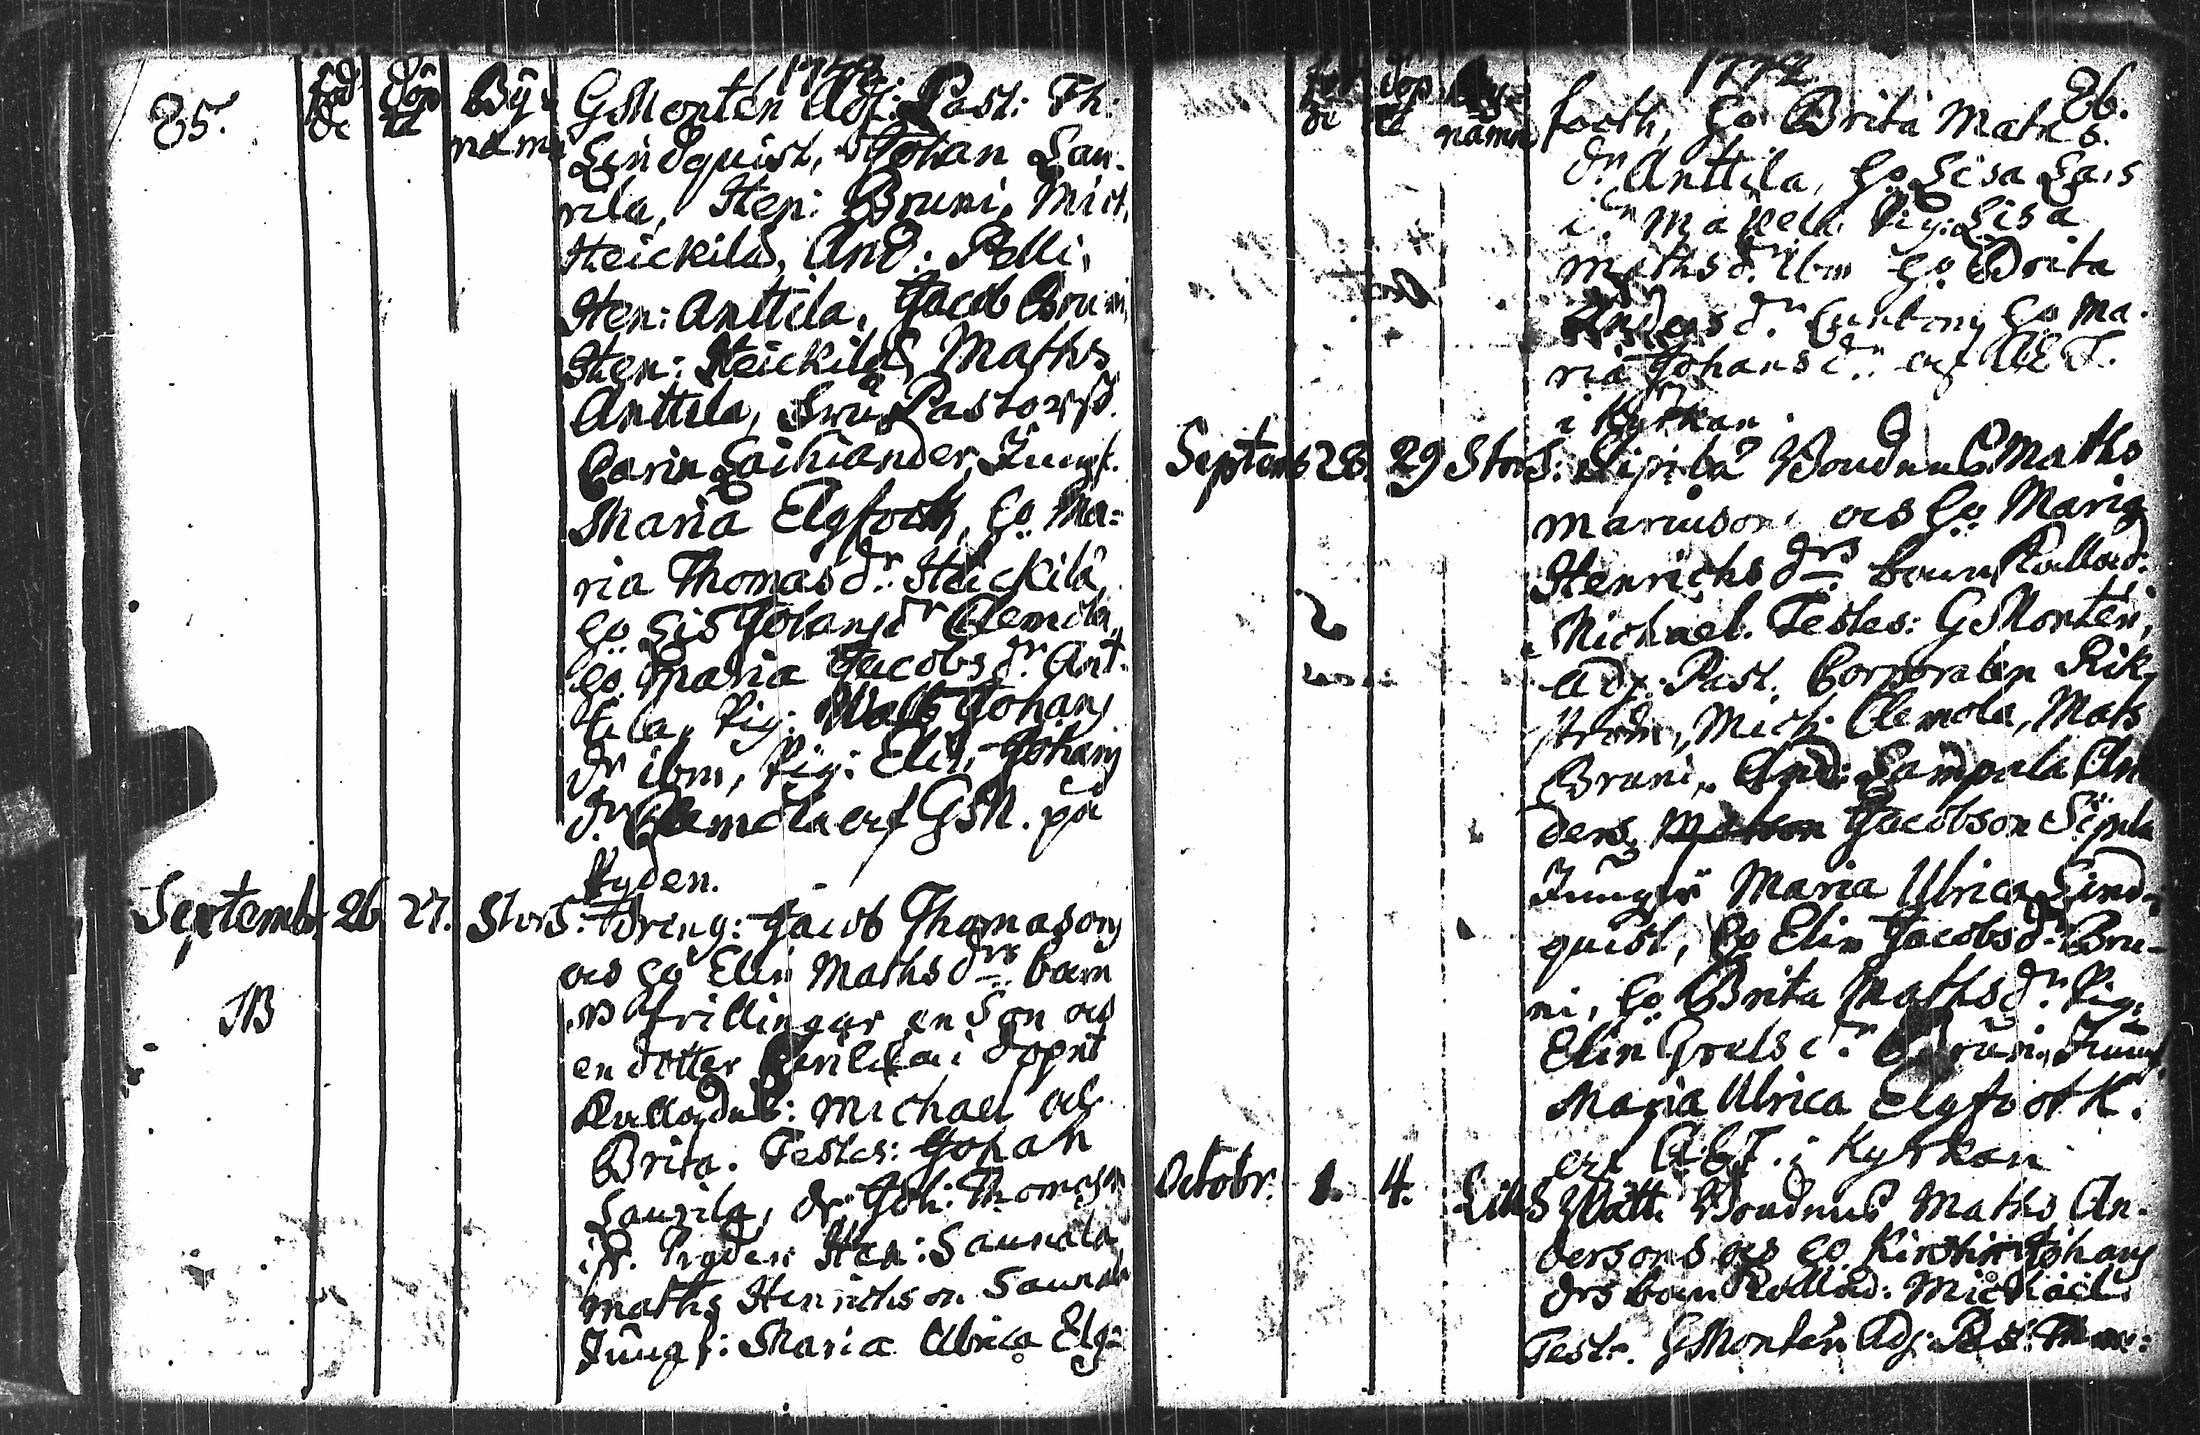 85.
föd
de
döp
te
By
namn
1772
G Monten Adj: Past: Th:
Lindquist, Johan Lau-
rila, Hen: Bruni, Mich.
Heickilä, And: Pelli,
Hen: Anttila, Jacob Bruni
Hen: Heickilä Maths
Anttila, Fru Pastorsk.
Carin Laihiander, Jungf.
Maria Elgfoth, ho Ma=
ria Thomas dr Heickilä
ho Lis Johans dr Clemola
ho Maria Jacobs dr Ant-
tila, Pig: Walb Johans
dr ibm, Pig: Elis: Johans
dr Clemola af GM. på
Ryden.
Septemb: 26 27. StorS: Dreng: Jacob Thomasons
ocs ho Elin Maths drs barn
trillingar en Son och
en dotter hvilka i dopet
Kallades: Michael och
Brita. Testes: Johan
Laurila, dr: Joh: Thomass
Ryden Hen: Saunala
Maths Henrichson Saunala
Jungf: Maria Ulrica Elg=
NB
86.
föd
de
döp
te
By=
namn
1772
footh, ho Brita Maths
dr Anttila, ho Lisa Lars
dr Mattila Pig: Lisa
Maths dr ibm ho Brita
Anders dr ho Ma-
ria Johans dr af AET.
i Kyrkan
Septemb 28. 29 StorS: Sipilä Bondens Maths
Mariuson ocs ho Maria
Henrichs drs barn Kallad:
Michael. Testes: G Monten,
Adj: Past: Corporalen Rik
ström, Mich: Clemola, Mats
Bruni, And: Lampula An
ders Jacobson Sipila
Jungfr Maria Ulrica Lind-
quist, ho Elin Jacobs dr Bru-
ni, ho Brita Maths dr Pig:
Elin Grels dr Bruni, Jung
Maria Ulrica Elgfooth.
af AET. i Kyrkan
Octobr: 1. 4. LillS Watt: Bondens Maths An-
dersons ocs ho Kirstin Johans
drs barn Kallad: Michael.
Test: G Monten Adj: Past: